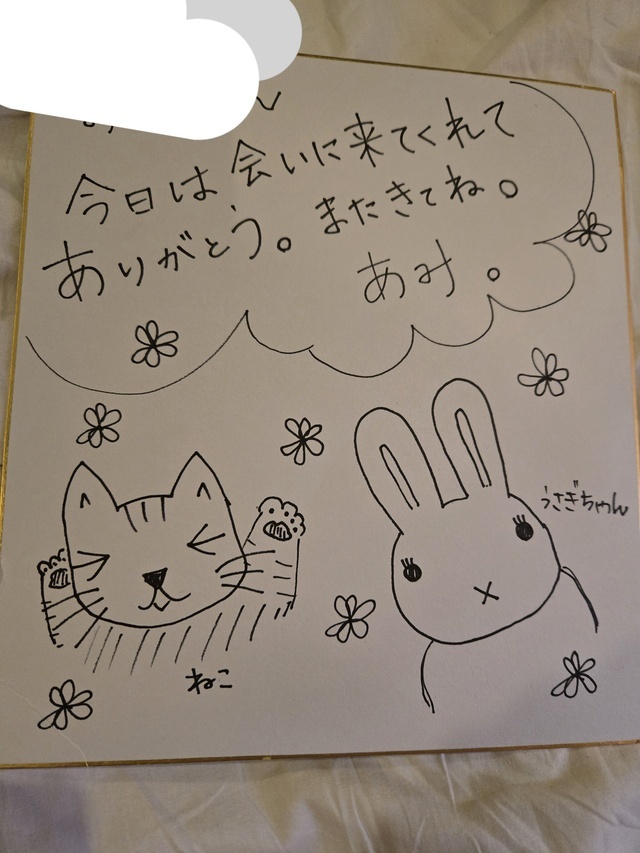 今日は、会いに来てくれて
ありがとう。またきてね。
あみ。
うさぎちゃん
ねこ